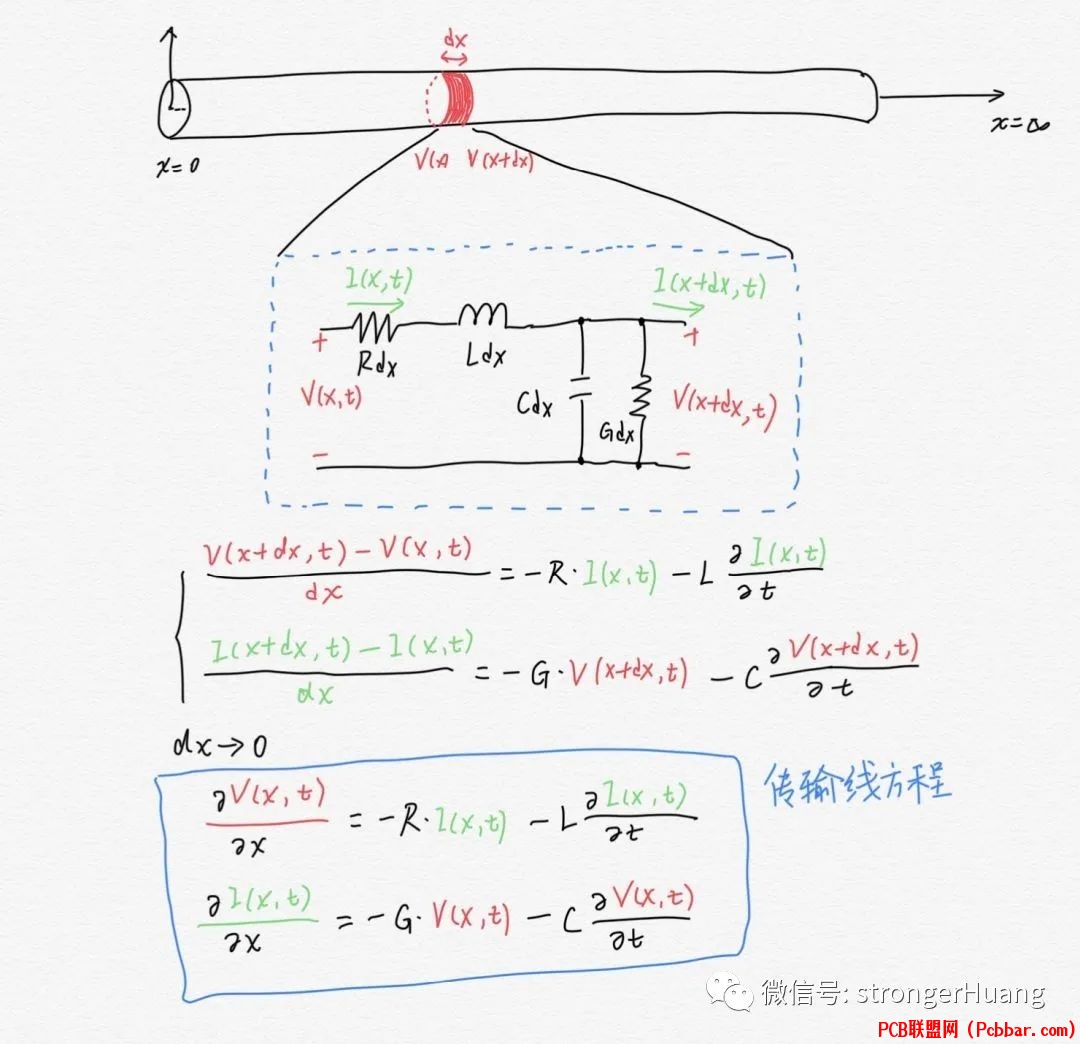 dx
x=0
x=∞
V(x V(x+dx)
I(x,t)
I(x+dx,t)
+
+
Rdx
Ldx
V(x,t)
Cdx
Gdx
V(x+dx,t)
-
-
V(x+dx,t)-V(x,t)/dx = -R·I(x,t) - L ∂I(x,t)/∂t
I(x+dx,t)-I(x,t)/dx = -G·V(x+dx,t) - C ∂V(x+dx,t)/∂t
dx→0
传输线方程
∂V(x,t)/∂x = -R·I(x,t) - L ∂I(x,t)/∂t
∂I(x,t)/∂x = -G·V(x,t) - C ∂V(x,t)/∂t
微信号: strongerHuang
PCB联盟网（Pcbbar.com）